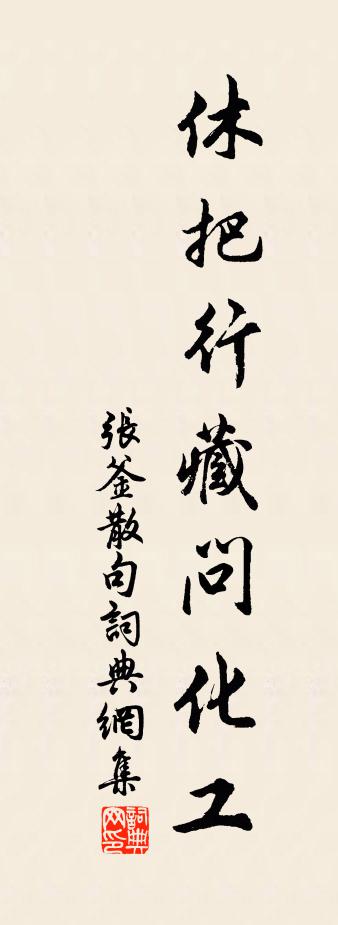 休把行藏問化工
張釜散句詞典網集
詞典網印